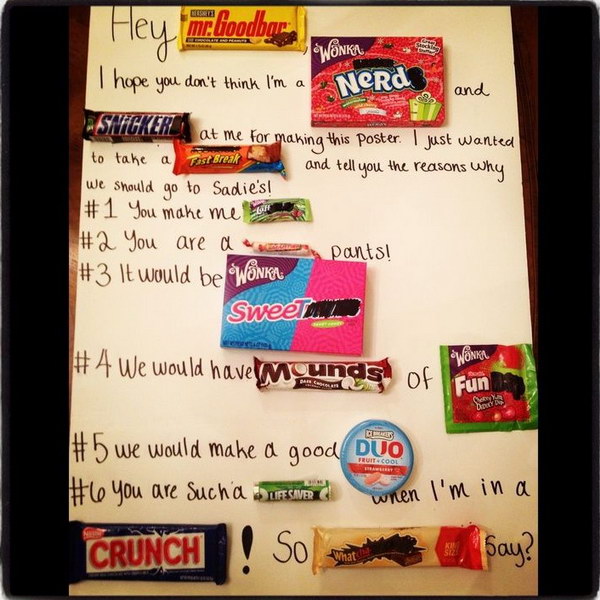 Hey HERSHEY'S mr.Goodbar
I hope you don't think I'm a WONKA NeRd and
SNICKER at me for making this poster. I just wanted
to take a Fast Break and tell you the reasons why
we should go to Sadie's!
#1 You make me Laff
#2 You are a pants!
#3 It would be WONKA Sweet
#4 We would have Mounds DARK CHOCOLATE of WONKA Fun
#5 we would make a good ICE BREAKERS DUO FRUIT + COOL STRAWBERRY
#6 You are such a LIFESAVER when I'm in a
Nestle CRUNCH! So What KING SIZE Say?